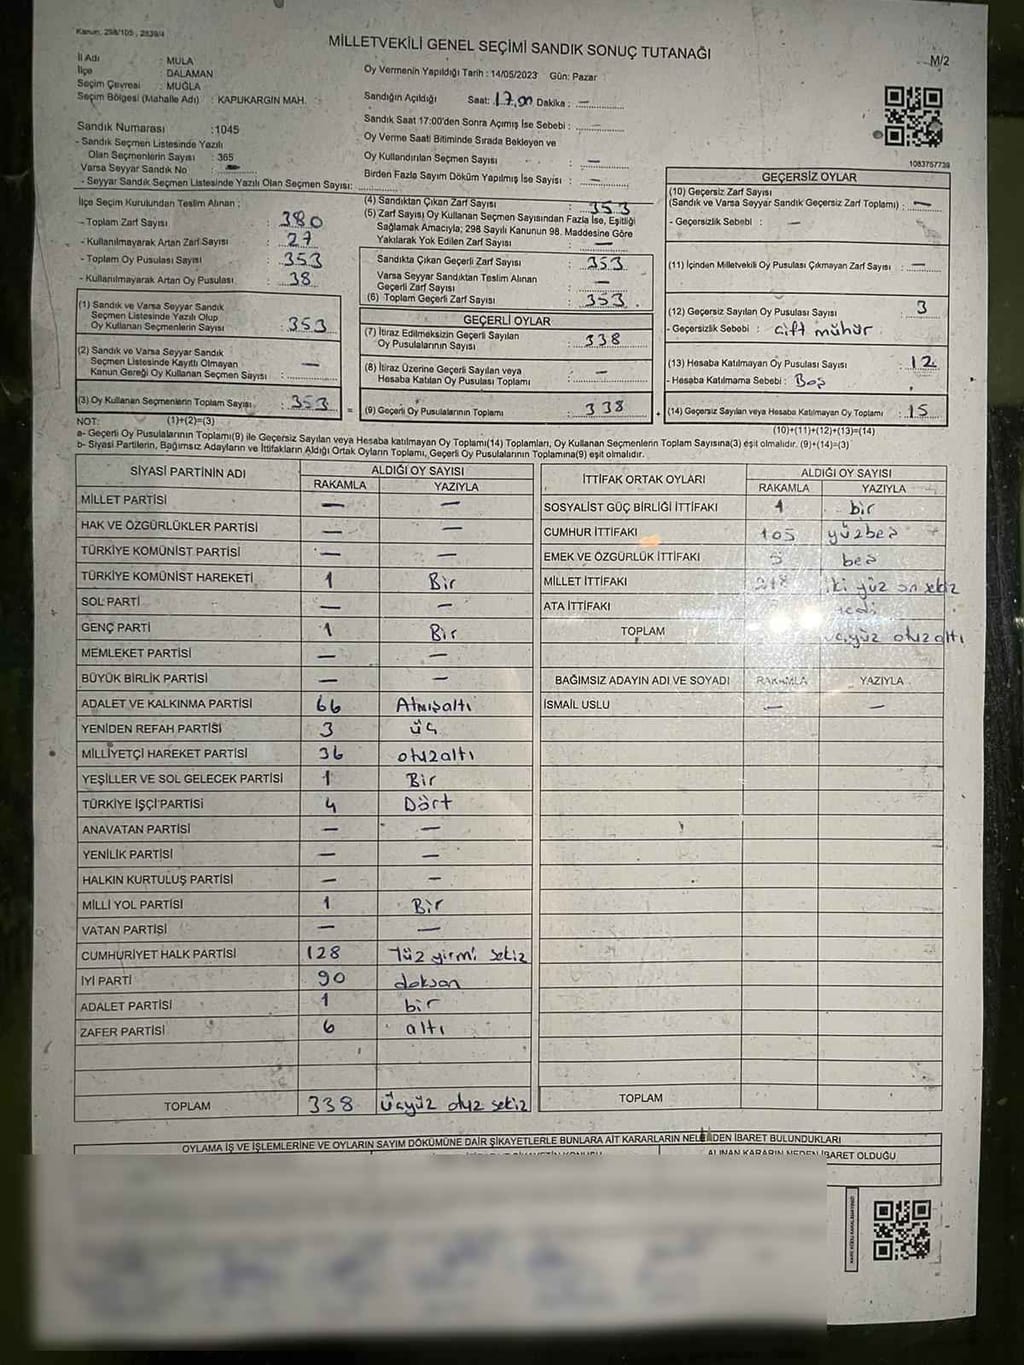 Kanun: 298/105 , 2839/4
MİLLETVEKİLİ GENEL SEÇİMİ SANDIK SONUÇ TUTANAĞI
M/2
İl Adı : MULA
İlçe : DALAMAN
Seçim Çevresi : MUĞLA
Seçim Bölgesi (Mahalle Adı) : KAPUKARGIN MAH.
Sandık Numarası :1045
- Sandık Seçmen Listesinde Yazılı
Olan Seçmenlerin Sayısı : 365
Varsa Seyyar Sandık No : —
- Seyyar Sandık Seçmen Listesinde Yazılı Olan Seçmen Sayısı:
Oy Vermenin Yapıldığı Tarih : 14/05/2023 Gün: Pazar
Sandığın Açıldığı Saat: 17.00 Dakika : —
Sandık Saat 17:00'den Sonra Açımış İse Sebebi : —
Oy Verme Saati Bitiminde Sırada Bekleyen ve
Oy Kullandırılan Seçmen Sayısı : —
Birden Fazla Sayım Döküm Yapılmış İse Sayısı : —
1083757739
İlçe Seçim Kurulundan Teslim Alınan ;
- Toplam Zarf Sayısı : 380
- Kullanılmayarak Artan Zarf Sayısı : 27
- Toplam Oy Pusulası Sayısı : 353
- Kullanılmayarak Artan Oy Pusulası : 38
(1) Sandık ve Varsa Seyyar Sandık
Seçmen Listesinde Yazılı Olup
Oy Kullanan Seçmenlerin Sayısı : 353
(2) Sandık ve Varsa Seyyar Sandık
Seçmen Listesinde Kayıtlı Olmayan
Kanun Gereği Oy Kullanan Seçmen Sayısı : —
(3) Oy Kullanan Seçmenlerin Toplam Sayısı : 353
(4) Sandıktan Çıkan Zarf Sayısı : 353
(5) Zarf Sayısı Oy Kullanan Seçmen Sayısından Fazla İse, Eşitliği
Sağlamak Amacıyla; 298 Sayılı Kanunun 98. Maddesine Göre
Yakılarak Yok Edilen Zarf Sayısı : —
Sandıkta Çıkan Geçerli Zarf Sayısı : 353
Varsa Seyyar Sandıktan Teslim Alınan
Geçerli Zarf Sayısı : —
(6) Toplam Geçerli Zarf Sayısı : 353
GEÇERLİ OYLAR
(7) İtiraz Edilmeksizin Geçerli Sayılan
Oy Pusulalarının Sayısı : 338
(8) İtiraz Üzerine Geçerli Sayılan veya
Hesaba Katılan Oy Pusulası Toplamı : —
= (9) Geçerli Oy Pusulalarının Toplamı : 338
GEÇERSİZ OYLAR
(10) Geçersiz Zarf Sayısı
(Sandık ve Varsa Seyyar Sandık Geçersiz Zarf Toplamı) : —
- Geçersizlik Sebebi : —
(11) İçinden Milletvekili Oy Pusulası Çıkmayan Zarf Sayısı : —
(12) Geçersiz Sayılan Oy Pusulası Sayısı : 3
- Geçersizlik Sebebi : çift mühür
(13) Hesaba Katılmayan Oy Pusulası Sayısı : 12
- Hesaba Katılmama Sebebi : Boş
(14) Geçersiz Sayılan veya Hesaba Katılmayan Oy Toplamı : 15
NOT: (1)+(2)=(3)
(10)+(11)+(12)+(13)=(14)
a- Geçerli Oy Pusulalarının Toplamı(9) ile Geçersiz Sayılan veya Hesaba katılmayan Oy Toplamı(14) Toplamları, Oy Kullanan Seçmenlerin Toplam Sayısına(3) eşit olmalıdır. (9)+(14)=(3)
b- Siyasi Partilerin, Bağımsız Adayların ve İttifakların Aldığı Ortak Oyların Toplamı, Geçerli Oy Pusulalarının Toplamına(9) eşit olmalıdır.
SİYASİ PARTİNİN ADI ALDIĞI OY SAYISI
RAKAMLA YAZIYLA
MİLLET PARTİSİ — —
HAK VE ÖZGÜRLÜKLER PARTİSİ — —
TÜRKİYE KOMÜNİST PARTİSİ — —
TÜRKİYE KOMÜNİST HAREKETİ 1 Bir
SOL PARTİ — —
GENÇ PARTİ 1 Bir
MEMLEKET PARTİSİ — —
BÜYÜK BİRLİK PARTİSİ — —
ADALET VE KALKINMA PARTİSİ 66 Atmışaltı
YENİDEN REFAH PARTİSİ 3 üç
MİLLİYETÇİ HAREKET PARTİSİ 36 otuzaltı
YEŞİLLER VE SOL GELECEK PARTİSİ 1 Bir
TÜRKİYE İŞÇİ PARTİSİ 4 Dört
ANAVATAN PARTİSİ — —
YENİLİK PARTİSİ — —
HALKIN KURTULUŞ PARTİSİ — —
MİLLİ YOL PARTİSİ 1 Bir
VATAN PARTİSİ — —
CUMHURİYET HALK PARTİSİ 128 Yüz yirmi sekiz
İYİ PARTİ 90 doksan
ADALET PARTİSİ 1 bir
ZAFER PARTİSİ 6 altı
TOPLAM 338 üçyüz otuz sekiz
İTTİFAK ORTAK OYLARI ALDIĞI OY SAYISI
RAKAMLA YAZIYLA
SOSYALİST GÜÇ BİRLİĞİ İTTİFAKI 1 bir
CUMHUR İTTİFAKI 105 yüzbeş
EMEK VE ÖZGÜRLÜK İTTİFAKI 5 beş
MİLLET İTTİFAKI 218 iki yüz on sekiz
ATA İTTİFAKI yedi
TOPLAM üçyüz otuzaltı
BAĞIMSIZ ADAYIN ADI VE SOYADI RAKAMLA YAZIYLA
İSMAİL USLU — —
TOPLAM
OYLAMA İŞ VE İŞLEMLERİNE VE OYLARIN SAYIM DÖKÜMÜNE DAİR ŞİKAYETLERLE BUNLARA AİT KARARLARIN NELERDEN İBARET BULUNDUKLARI
ALINAN KARARIN NEDEN İBARET OLDUĞU